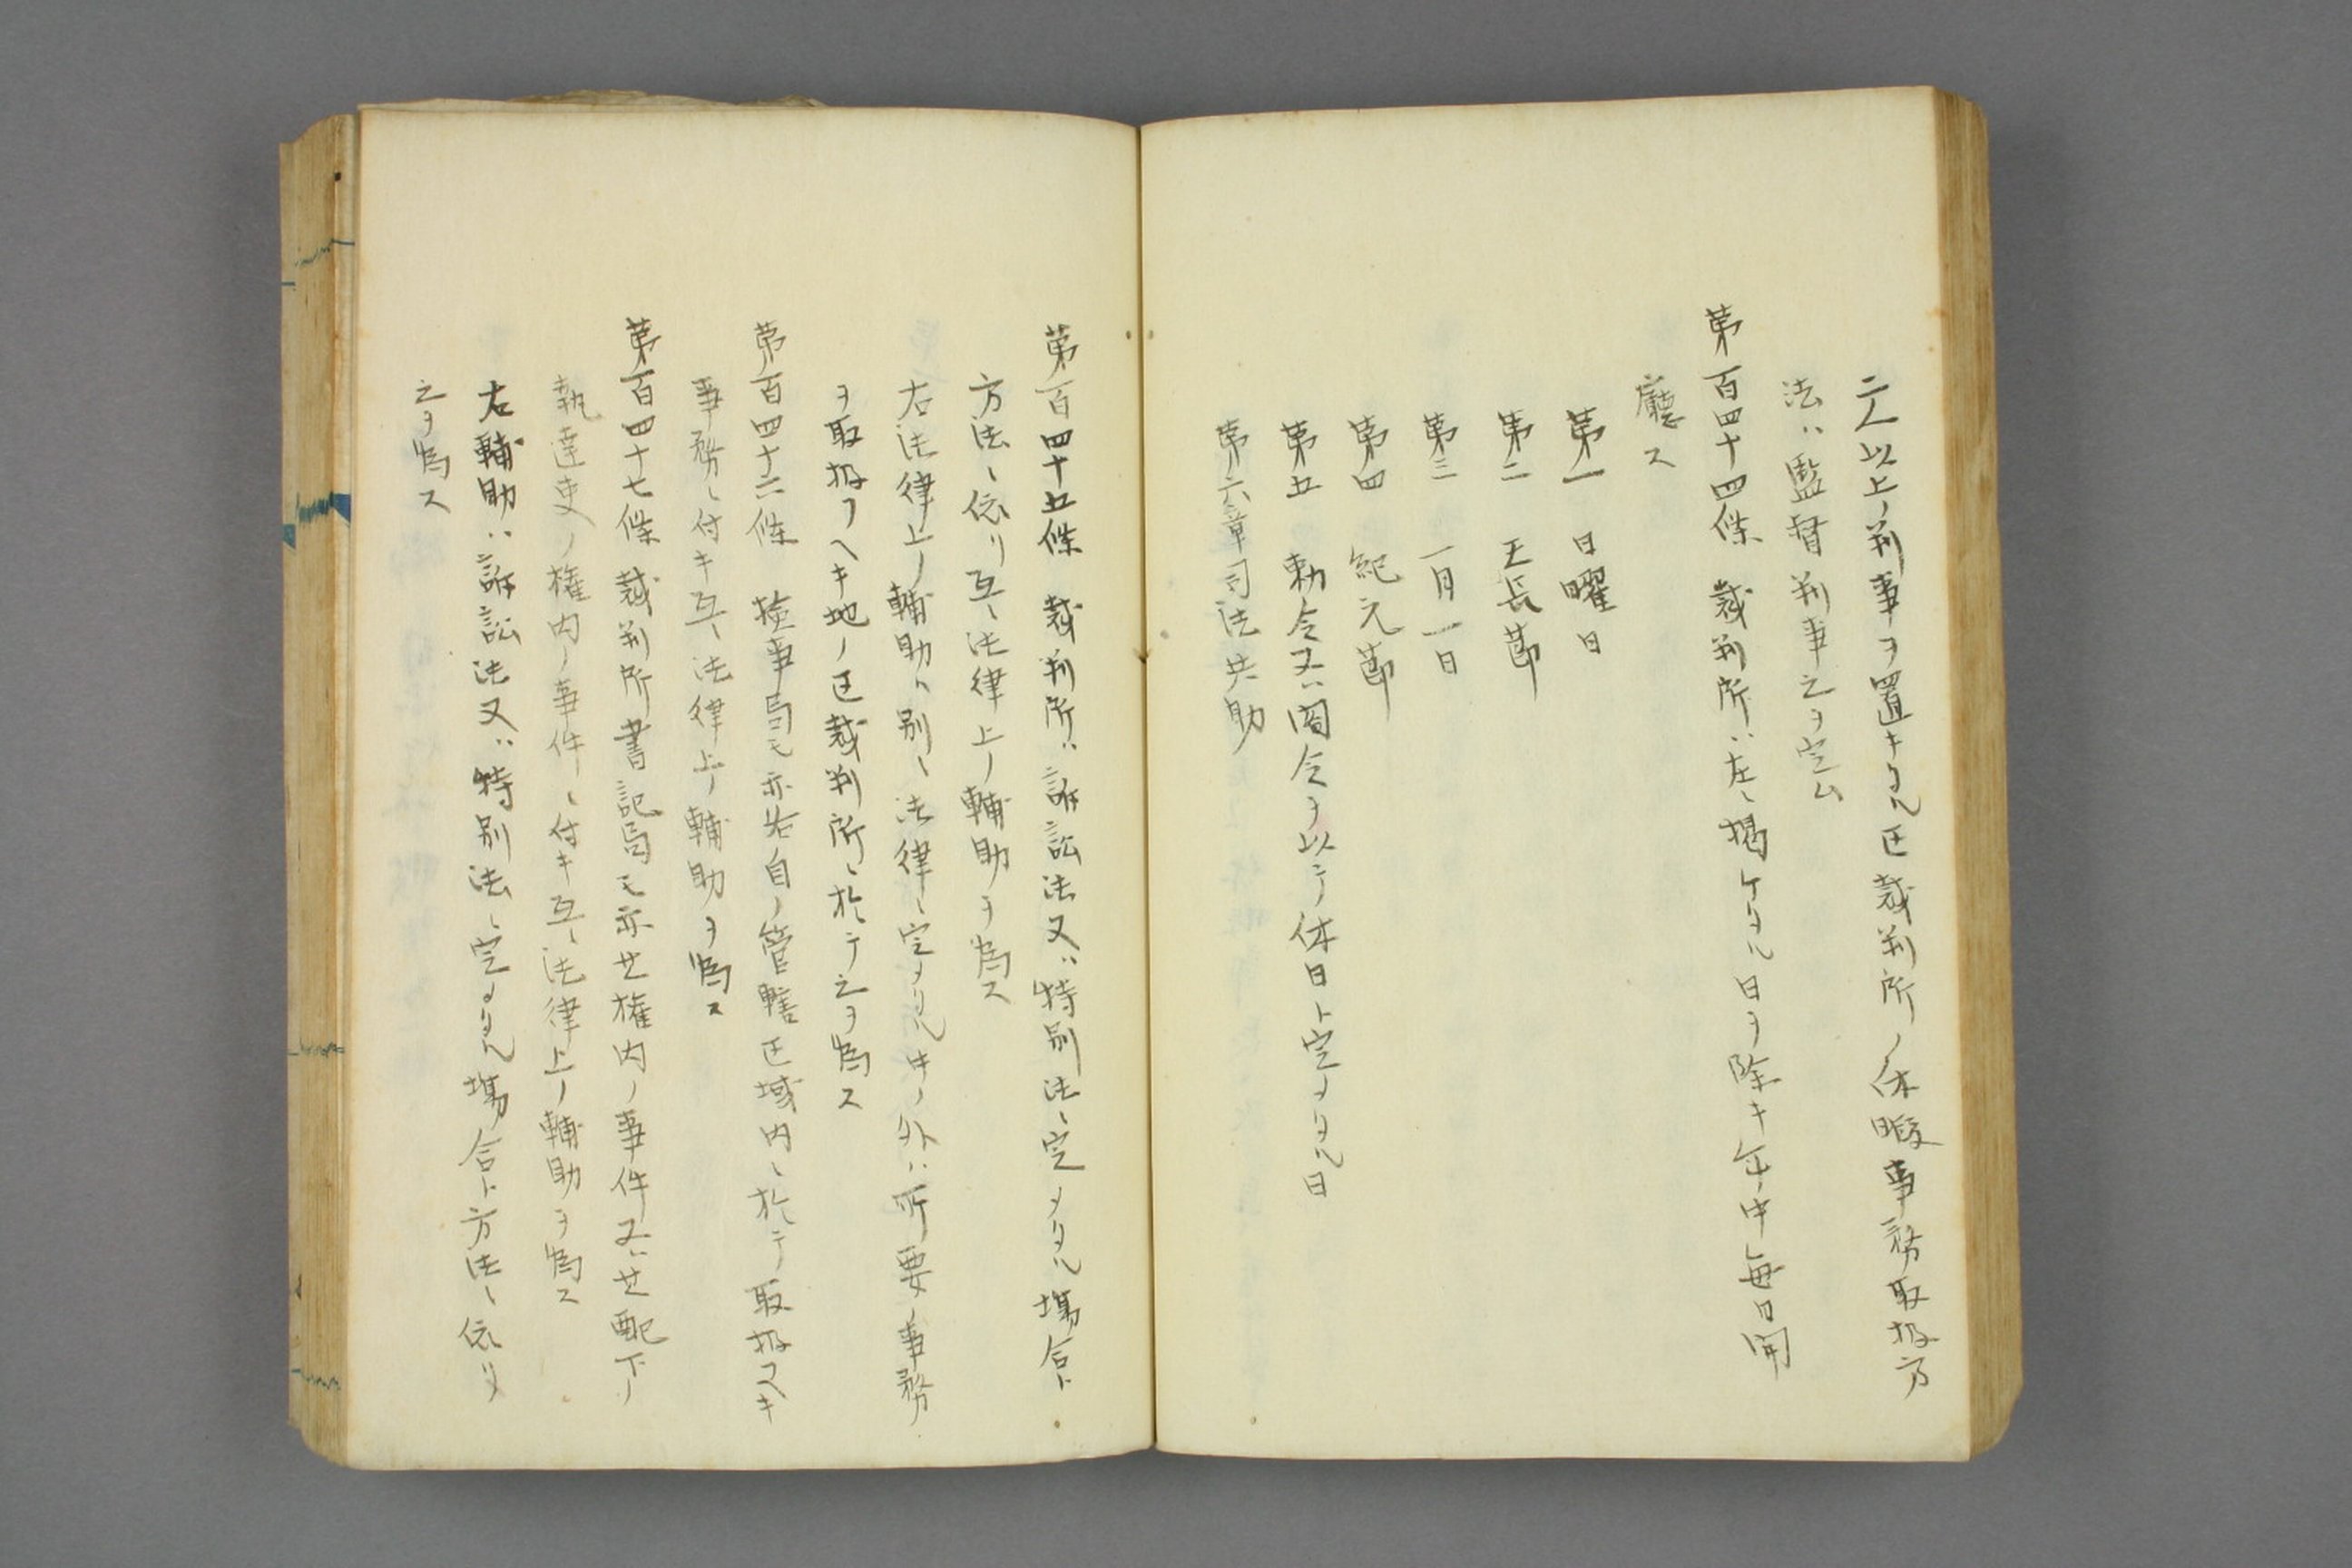 二人以上ノ判事ヲ置キタル区裁判所ノ休暇事務取扱方
法ハ監督判事之ヲ定ム
第百四十四條 裁判所ハ左ニ掲ケタル日ヲ除キ年中毎日開
廳ス
第一 日曜日
第二 天長節
第三 一月一日
第四 紀元節
第五 勅令又ハ閣令ヲ以テ休日ト定メタル日
第六章司法共助
第百四十五條 裁判所ハ訴訟法又ハ特別法ニ定メタル塲合ト
方法ニ依リ互ニ法律上ノ輔助ヲ為ス
右法律上ノ輔助ハ別ニ法律ニ定メタル中ノ外ハ所要ノ事務
ヲ取扱フヘキ地ノ区裁判所ニ於テ之ヲ為ス
第百四十六條 檢事局モ亦各自ノ管轄区域内ニ於テ取扱フヘキ
事務ニ付キ互ニ法律上ノ輔助ヲ為ス
第百四十七條 裁判所書記局モ亦其権内ノ事件又ハ其配下ノ
執達吏ノ権内ノ事件ニ付キ互ニ法律上ノ輔助ヲ為ス
右輔助ハ訴訟法又ハ特別法ニ定メタル塲合ト方法ニ依リ
之ヲ為ス